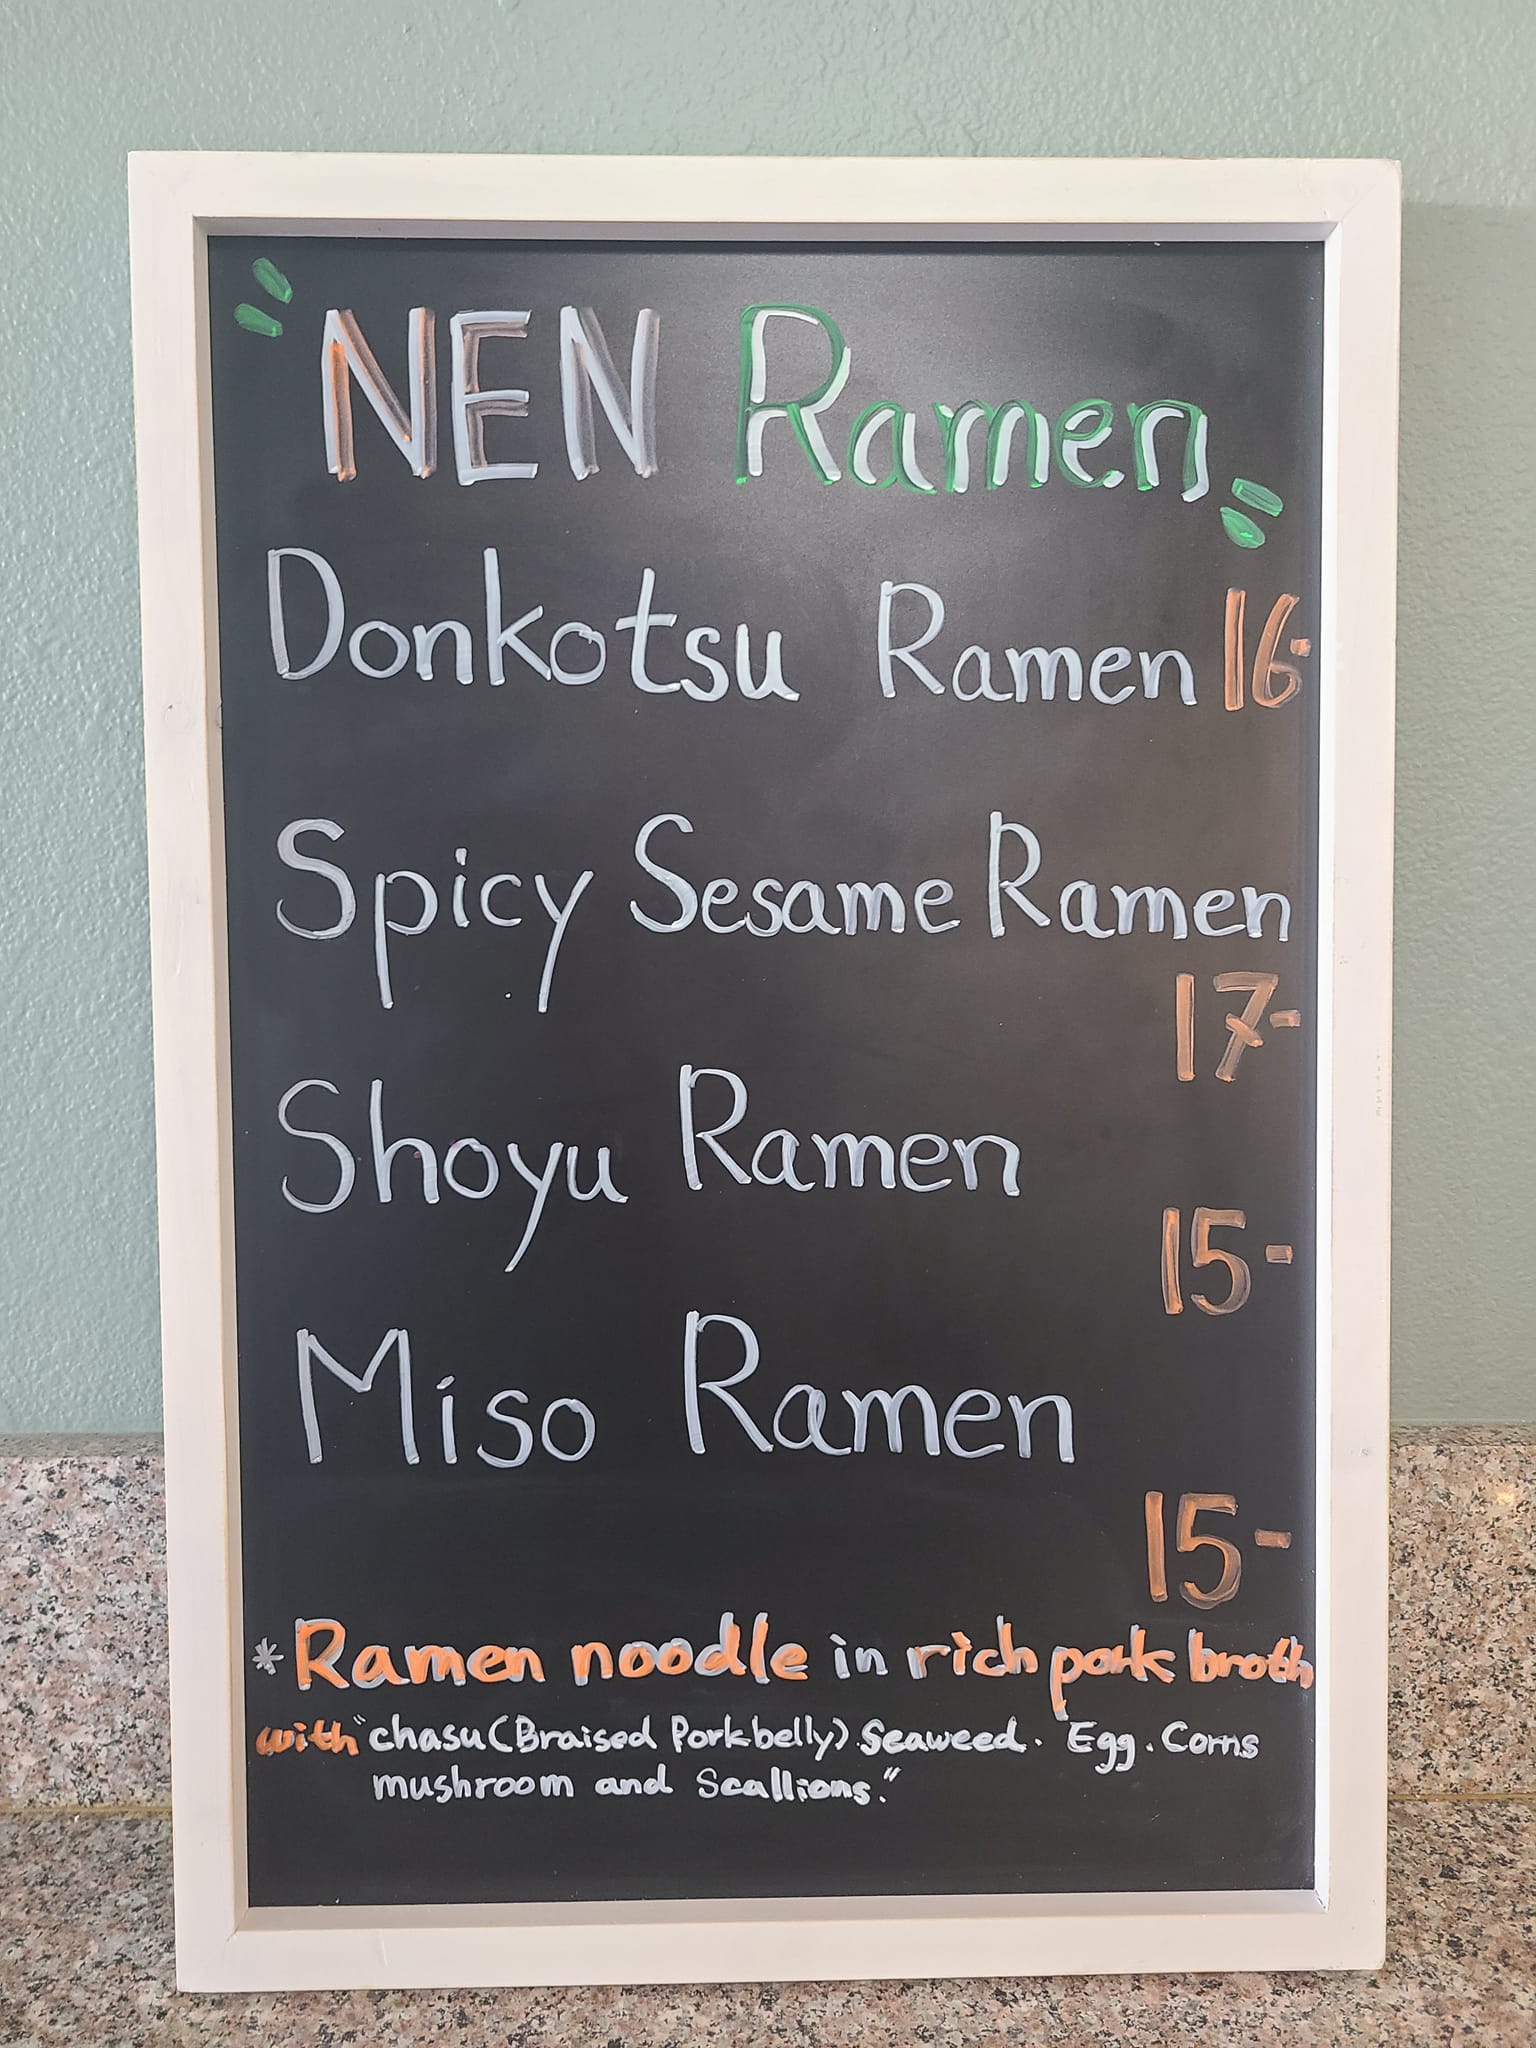 "NEN Ramen"
Donkotsu Ramen 16-
Spicy Sesame Ramen
17-
Shoyu Ramen
15-
Miso Ramen
15-
*Ramen noodle in rich pork broth
with "chasu (Braised Porkbelly) Seaweed. Egg. Corns
mushroom and Scallions."